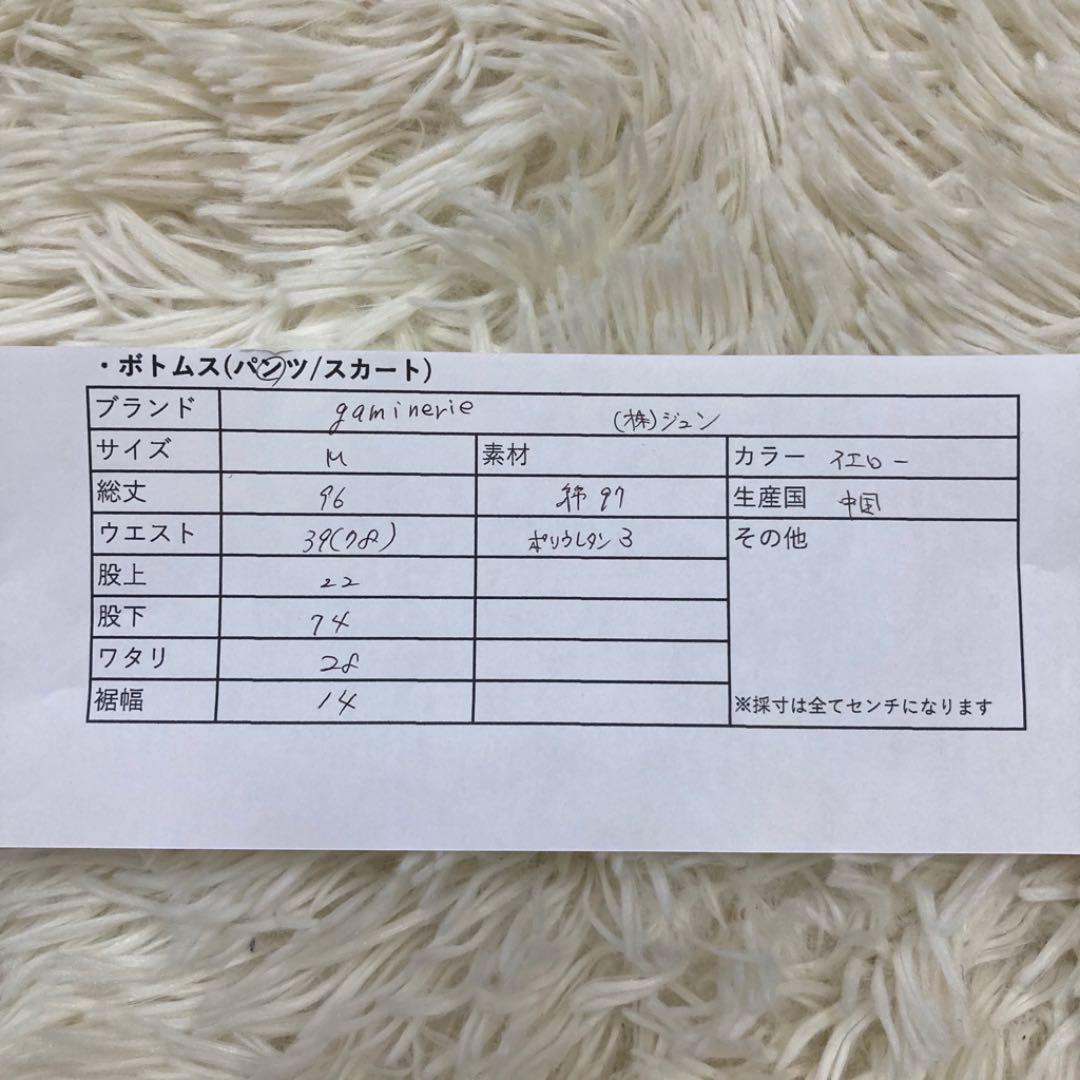 ・ボトムス(パンツ/スカート)
ブランド gaminerie (株)ジュン
サイズ M 素材 カラー イエロー
総丈 96 綿 97 生産国 中国
ウエスト 39(78) ポリウレタン 3 その他
股上 22
股下 74
ワタリ 28
裾幅 14 ※採寸は全てセンチになります